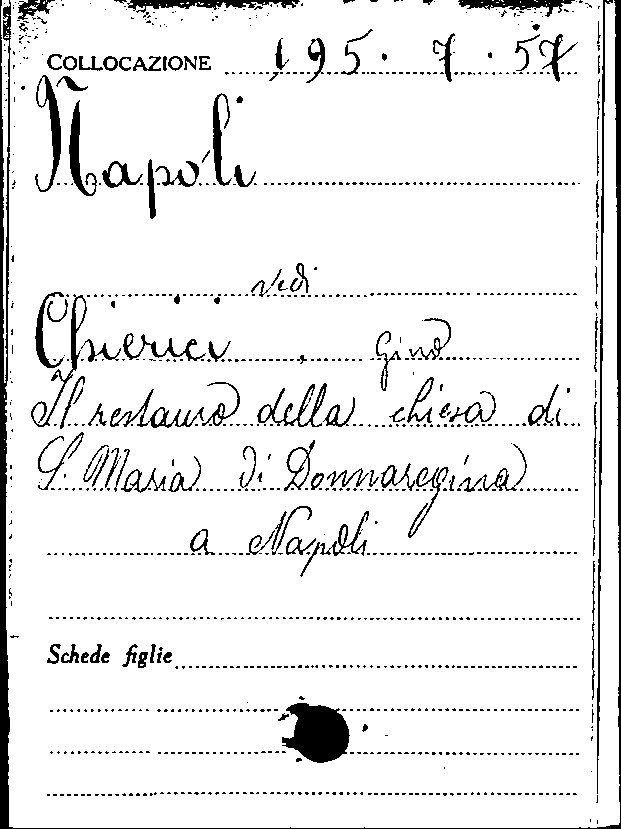 COLLOCAZIONE 195. 7. 57
Napoli
vedi
Chierici, Gino
Il restauro della chiesa di
S. Maria di Donnaregina
a Napoli
Schede figlie